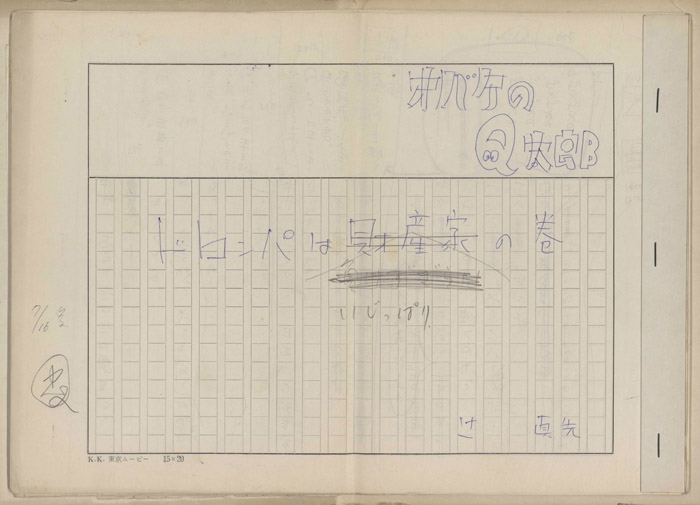 オバケの
Q太郎B
ドロンパは財産家の巻
いじっぱり
辻 真先
7/16
K.K. 東京ムービー 15×20